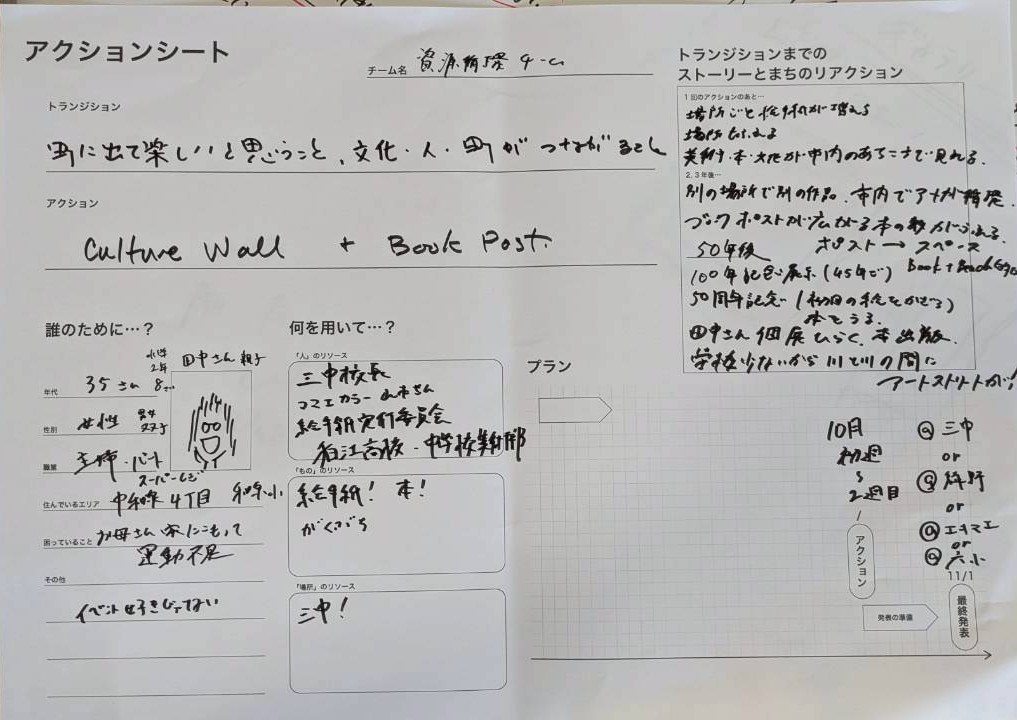 アクションシート
チーム名 資源循環チーム
トランジション
町に出て楽しいと思うこと、文化・人・町がつながること
アクション
Culture Wall + Book Post.
誰のために…?
小学2年
田中さん親子
年代 35さい 8さい
性別 女性 男女 双子
職業 主婦・パート
スーパーレジ
住んでいるエリア 中和泉4丁目 和泉小
困っていること お母さん 家にこもって
運動不足
その他
イベント好きじゃない
何を用いて…?
「人」のリソース
三中校長
コマエカラー
絵手紙実行委員会
狛江高校・中学校美術部
「もの」のリソース
絵手紙! 本!
がくぶち
「場所」のリソース
三中!
トランジションまでの
ストーリーとまちのリアクション
1回のアクションのあと…
場所ごと絵手紙が増える
場所もふえる
美術・本・文化が市内のあちこちで見れる.
2,3年後…
別の場所で別の作品.市内でアートが循環.
ブックポストが広がる本の数がふえる.
50年後 ポスト→スペース
100年記念展示(45年で) Book + Beach
50周年記念(初回の絵をかざる)
本をうる.
田中さん個展ひらく.本出版.
学校少ないから川と川の間に
アートストリートが!
プラン
10月
初週
2週目
アクション
@三中
or
or
@エキマエ
or
@六小
11/1
発表の準備
最終発表